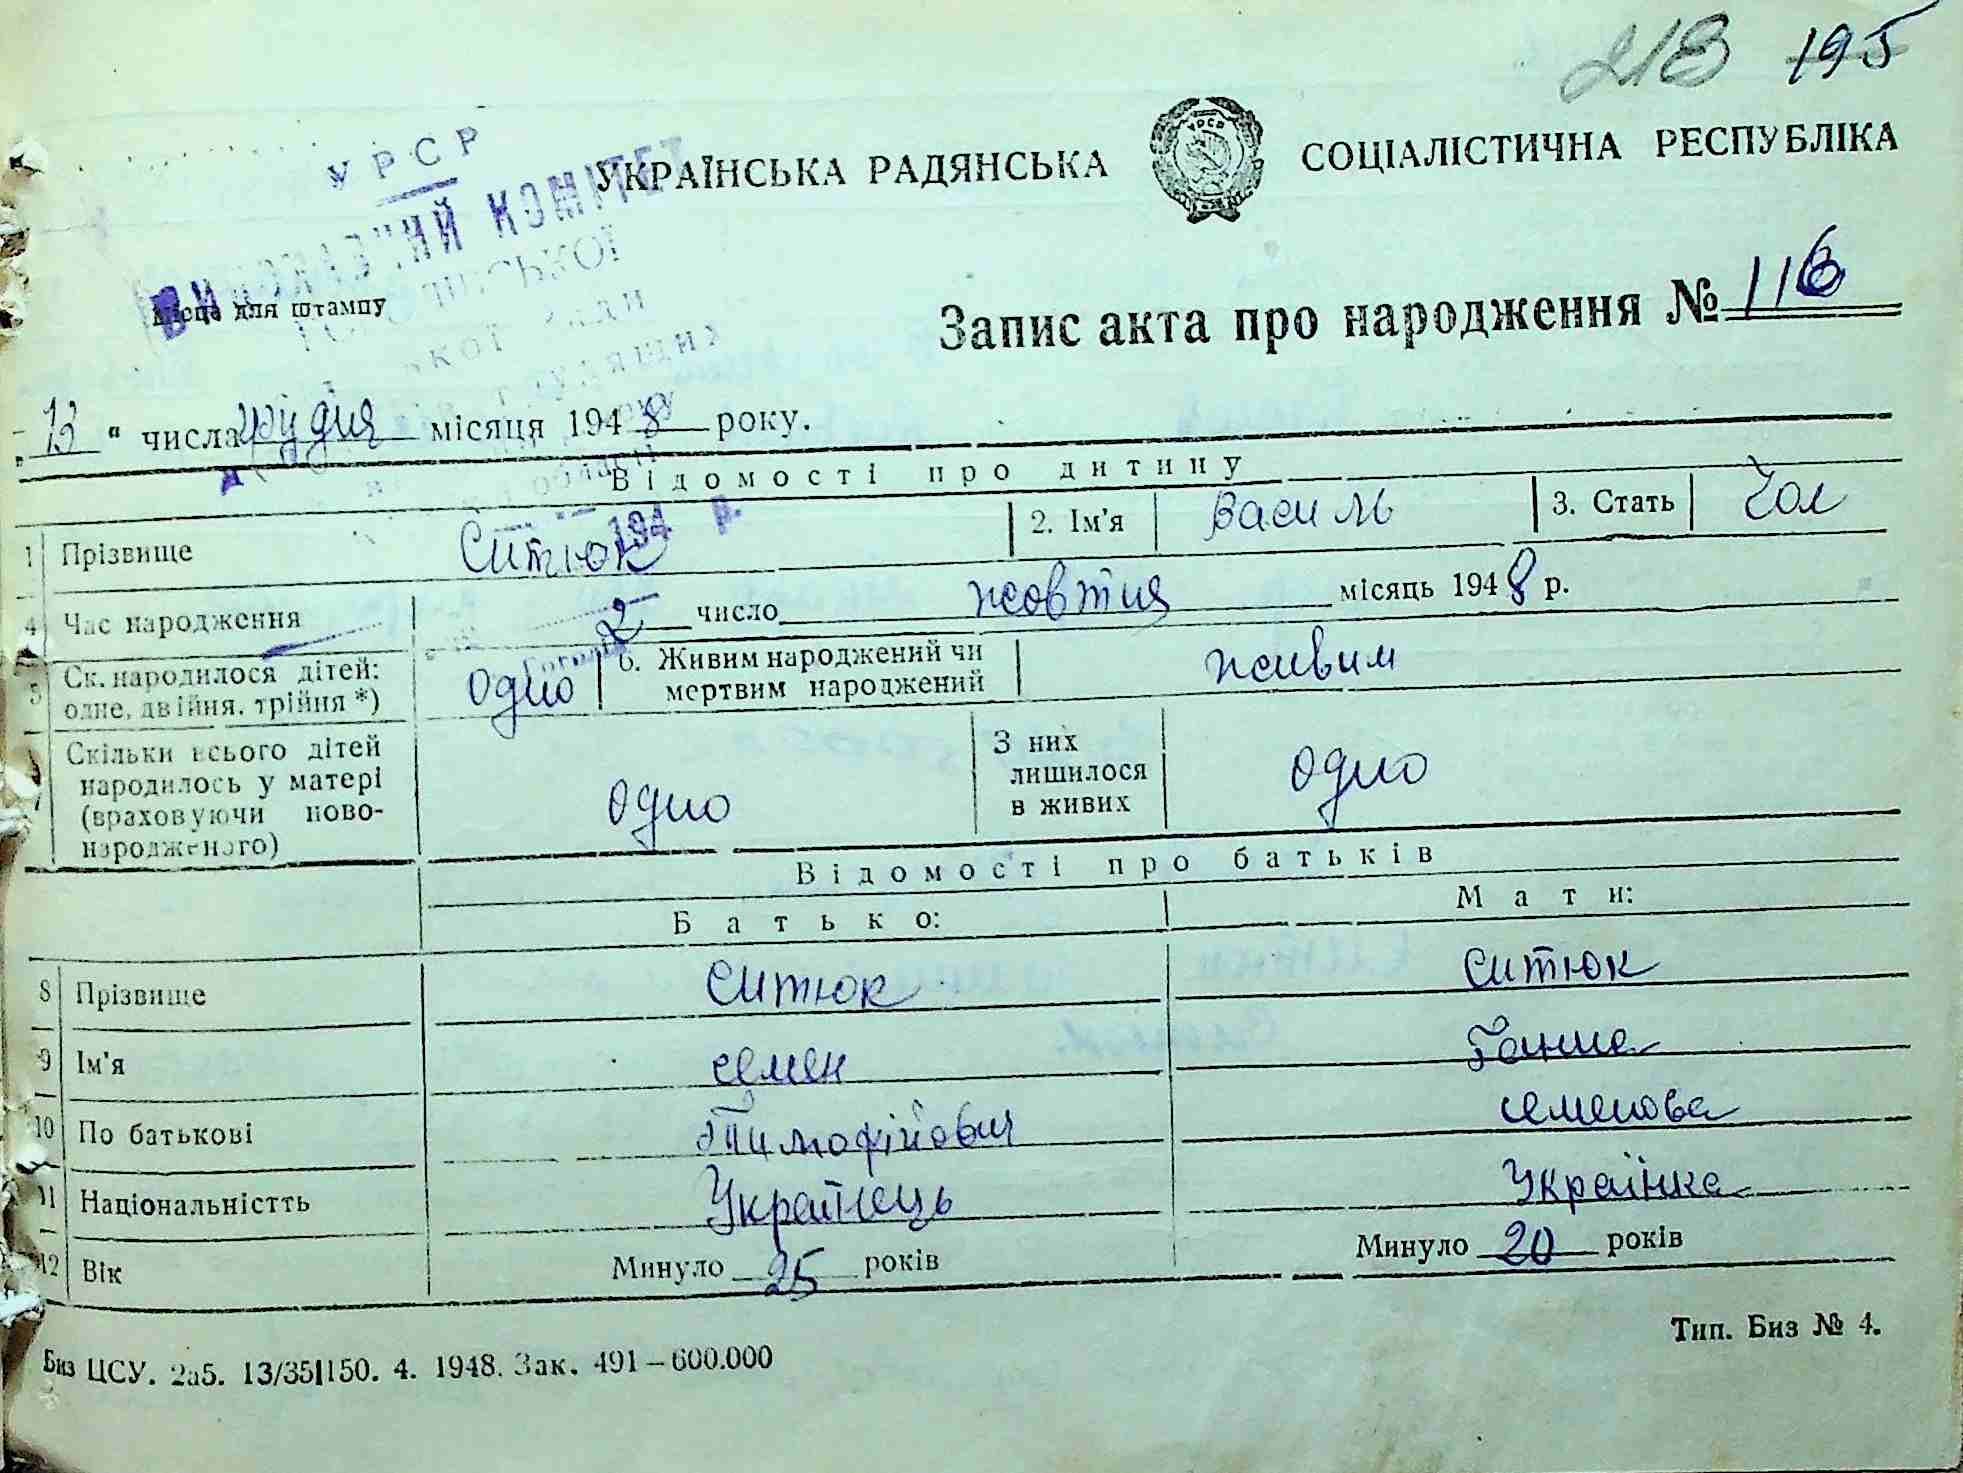 218 195
УРСР
ВИКОНАВЧИЙ КОМІТЕТ
УКРАЇНСЬКА РАДЯНСЬКА СОЦІАЛІСТИЧНА РЕСПУБЛІКА
УРСР
Місце для штампу
трудящих
Запис акта про народження № 116
„13" числа грудня місяця 1948 року.
області
Відомості про дитину
194 р.
1 Прізвище Ситюк 2. Ім'я Василь 3. Стать Чол
4 Час народження 2 число жовтня місяць 1948 р.
5 Ск. народилося дітей: одне, двійня, трійня *) одно 6. Живим народжений чи мертвим народжений живим
7 Скільки всього дітей народилось у матері (враховуючи ново-народженого) одно З них лишилося в живих одно
Відомості про батьків
Батько: Мати:
8 Прізвище Ситюк Ситюк
9 Ім'я Семен Ганна
10 По батькові Тимофійович Семенова
11 Національністть Українець Українка
12 Вік Минуло 25 років Минуло 20 років
Биз ЦСУ. 2а5. 13/35|150. 4. 1948. Зак. 491—600.000
Тип. Биз № 4.